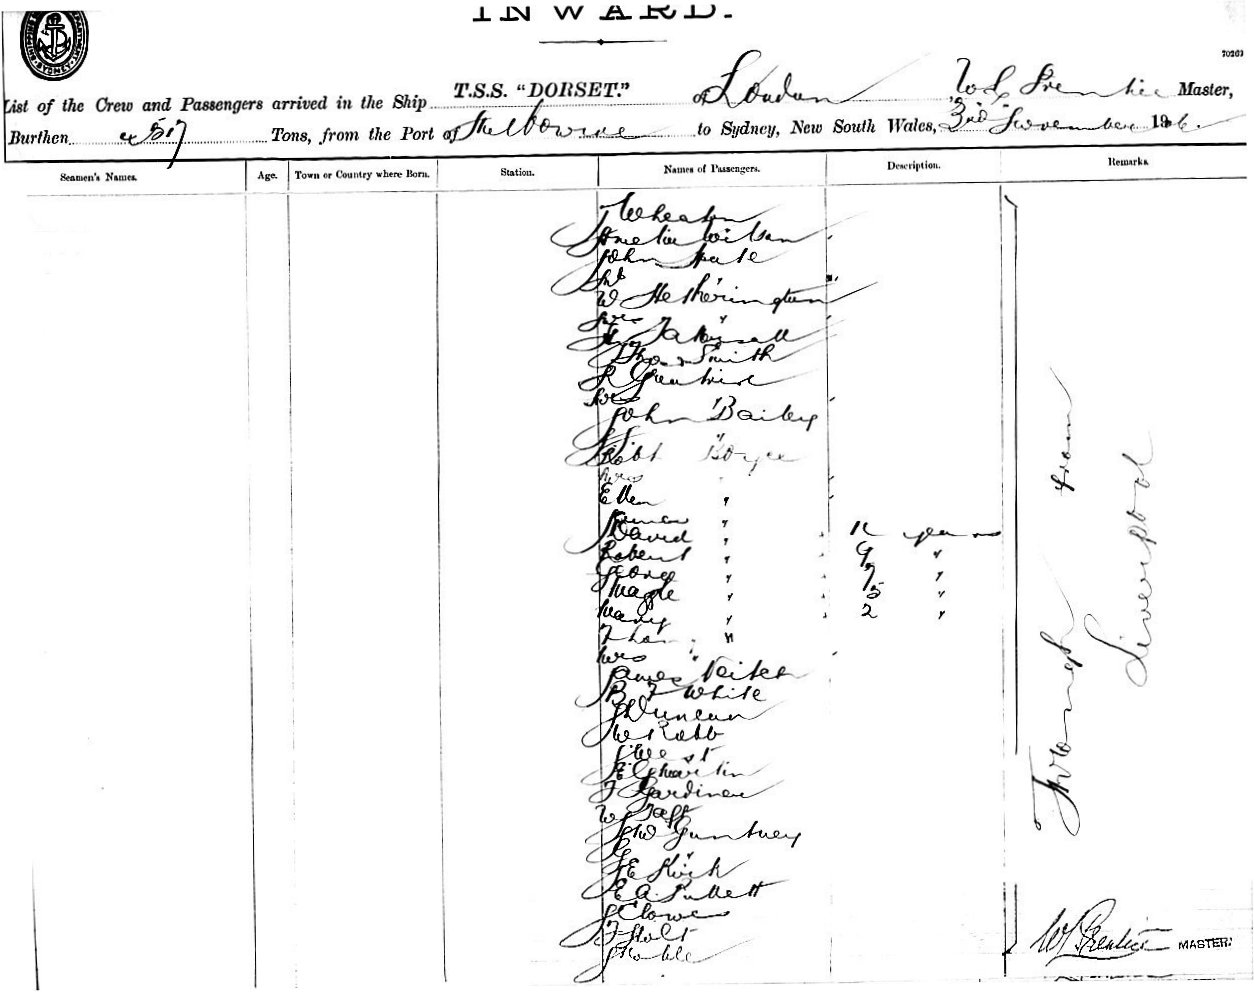 INWARD.
70263
List of the Crew and Passengers arrived in the Ship T.S.S. "DORSET." of London W L Prentice Master,
Burthen 4517 Tons, from the Port of Melbourne to Sydney, New South Wales, 3rd November 1906.
Seamen's Names. Age. Town or Country where Born. Station. Names of Passengers. Description. Remarks.
Wheaton
Amelia Wilson
John
W Hetherington "
Mrs "
Thos Smith
R
Mrs "
John Bailey
"
Robt Boyce
Mrs "
Ellen "
"
David " 11 years
Robert " 9 "
George " 7 "
Maggie " 5 "
Mary " 2 "
"
Mrs "
James Veitch
B F White
J Duncan
W Robb
J West
E G Martin
F Gardiner
W Taff
J W
"
J E Kirk
E A
J Clowes
F Holt
J
Through from
Liverpool
W L Prentice MASTER.